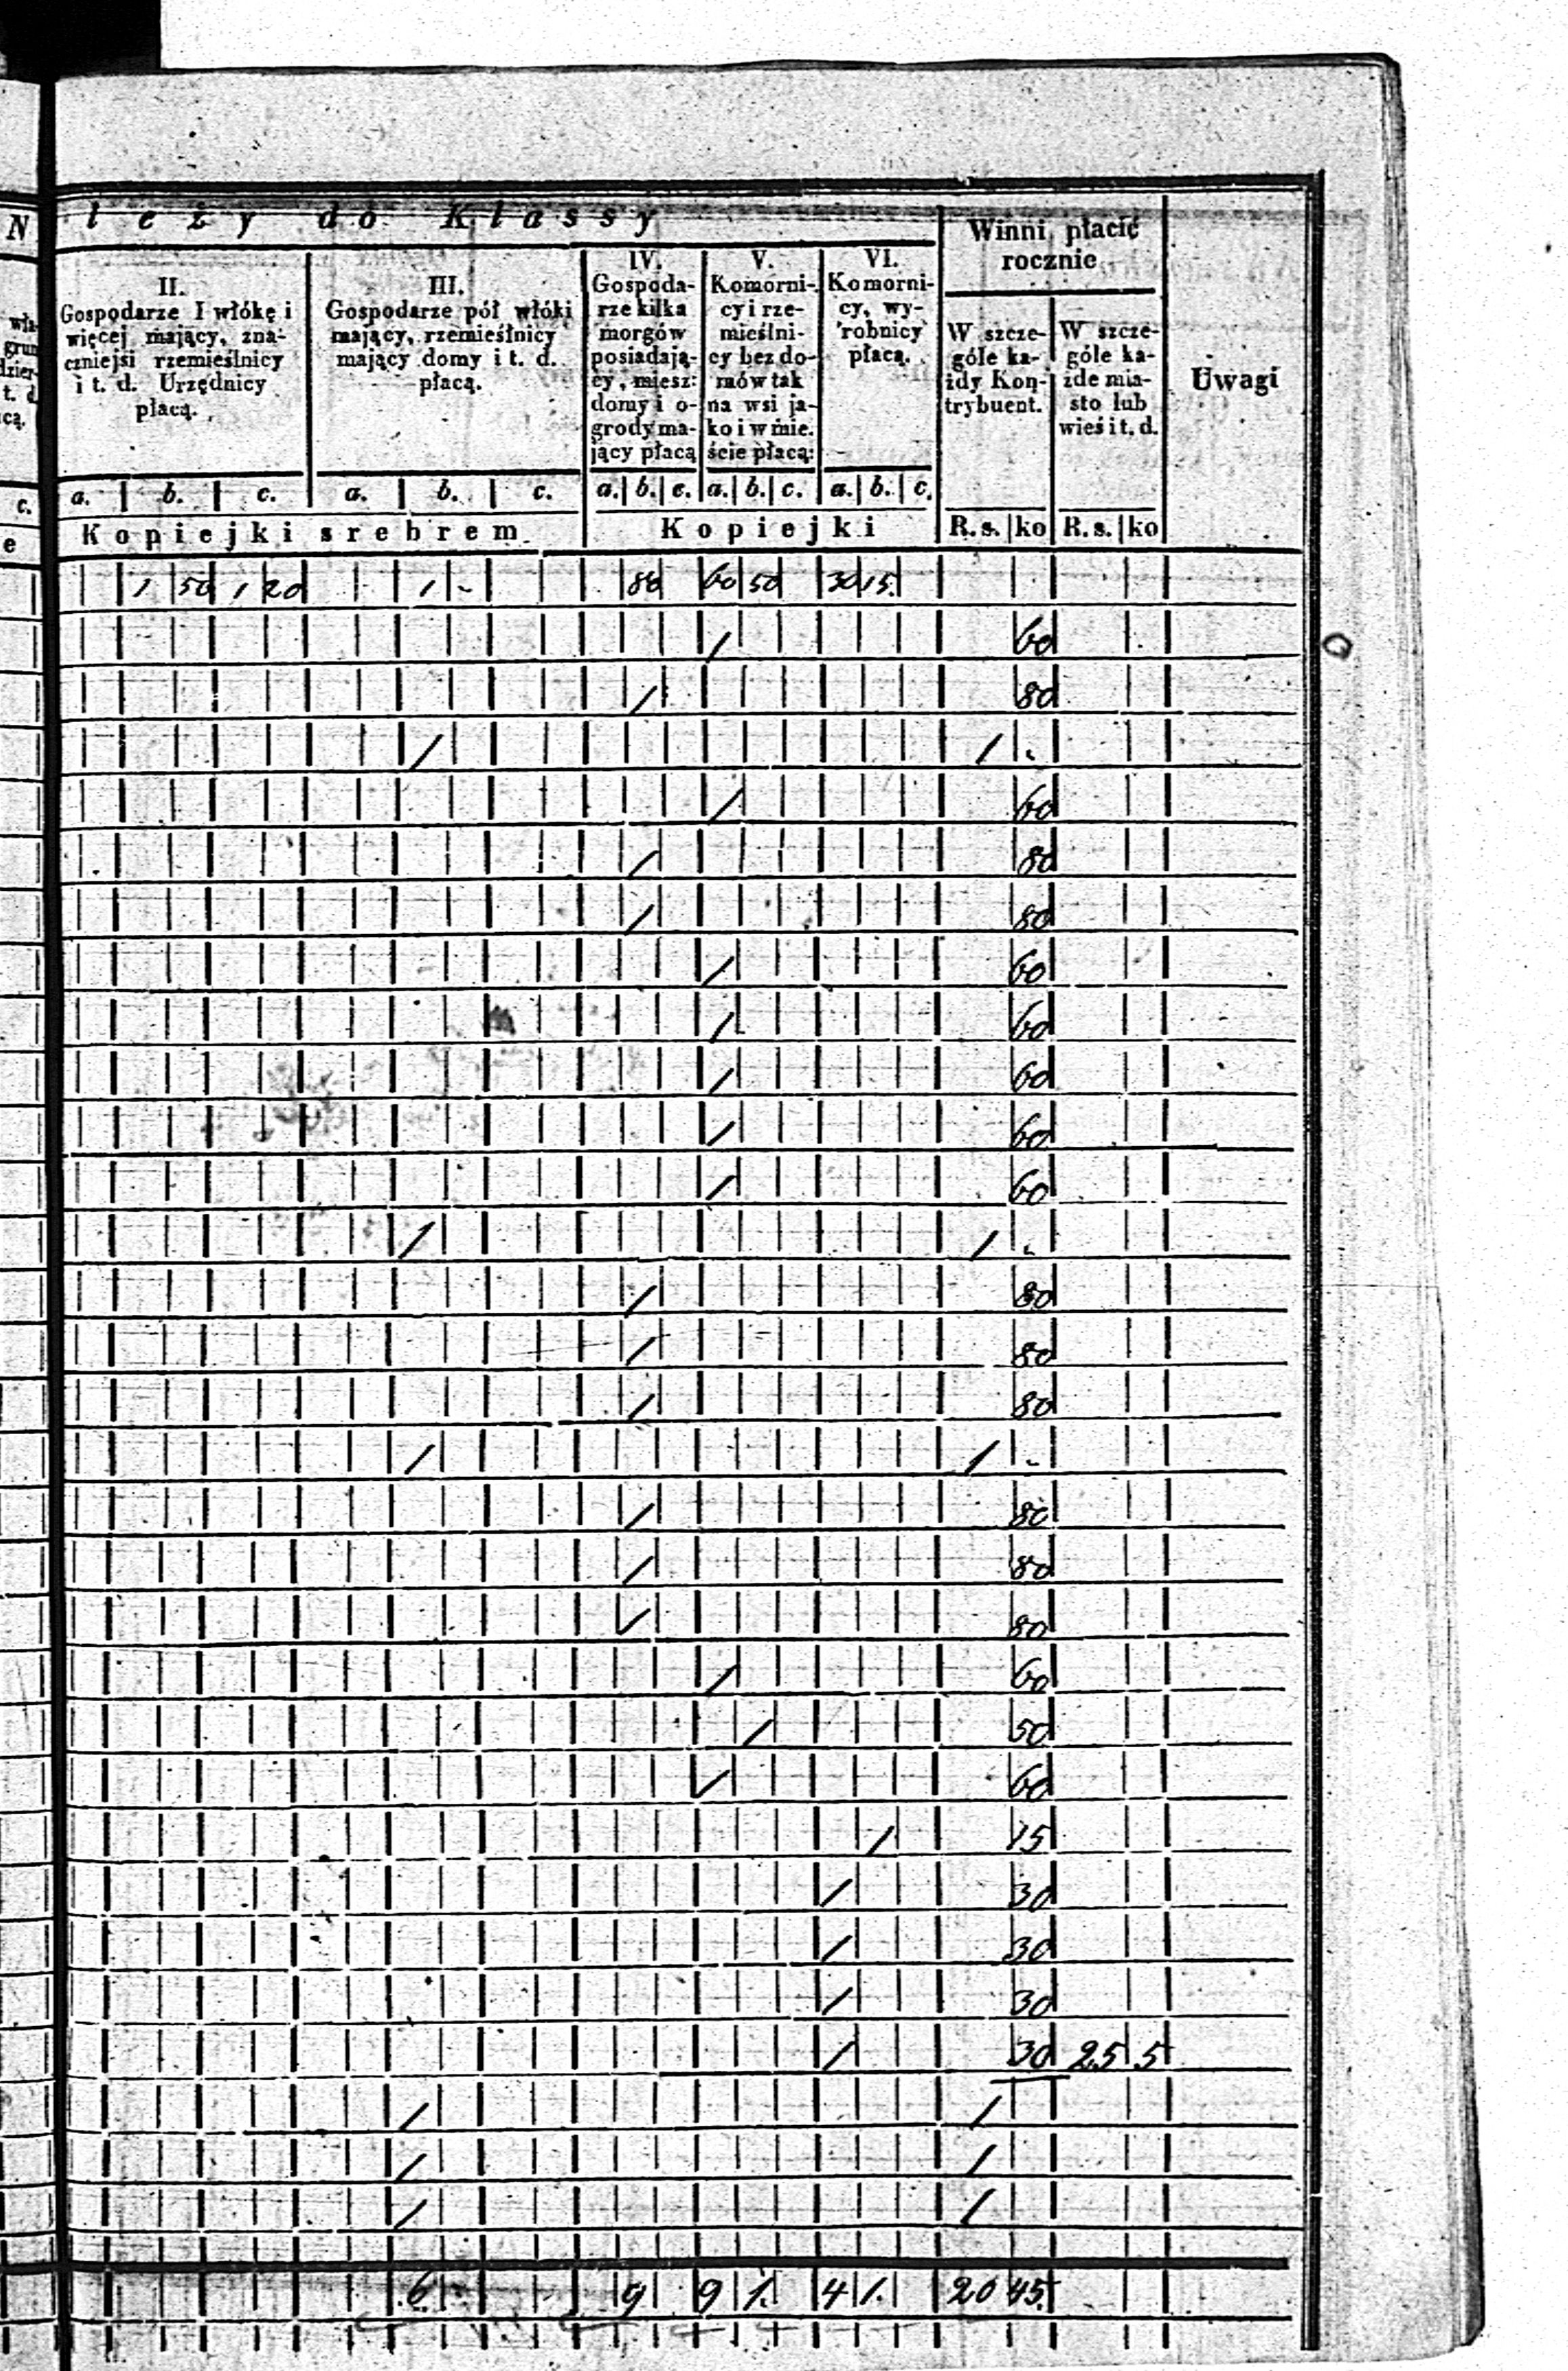 N leży do Klassy
Winni płacić
rocznie
II.
Gospodarze I włókę i
więcej mający, zna-
czniejsi rzemieślnicy
i t. d. Urzędnicy
płacą.
III.
Gospodarze pół włóki
mający, rzemieślnicy
mający domy i t. d.
płacą.
IV.
Gospoda-
rze kilka
morgów
posiadają-
cy, miesz:
domy i o-
grody ma-
jący płacą
V.
Komorni-
cy i rze-
mieślni-
cy bez do-
mów tak
na wsi ja-
ko i w mie.
ście płacą:
VI.
Komorni-
cy, wy-
robnicy
płacą.
W szcze-
góle ka-
żdy Kon-
trybuent.
W szcze-
góle ka-
żde mia-
sto lub
wieś i t. d.
Uwagi
c. a. b. c. a. b. c. a. b. c. a. b. c. a. b. c.
e Kopiejki srebrem Kopiejki R.s. ko R.s. ko
1 50 1 20 1 - 80 60 50 30 15
/ 60
/ 80
/ / -
/ 60
/ 80
/ 80
/ 60
/ 60
/ 60
/ 60
/ 60
/ / -
/ 80
/ 80
/ 80
/ / -
/ 80
/ 80
/ 80
/ 60
/ 50
/ 60
/ 15
/ 30
/ 30
/ 30
/ 30 25 5
/ /
/ /
/ /
6 9 9 1. 4 1. 20 45